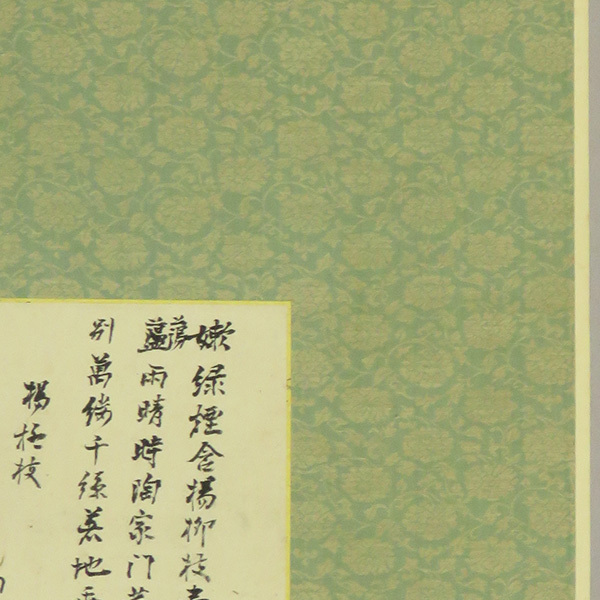 嫩綠煙含楊柳枝
蕩雨晴時陶家門
別萬縷千絲着地
楊柳枝